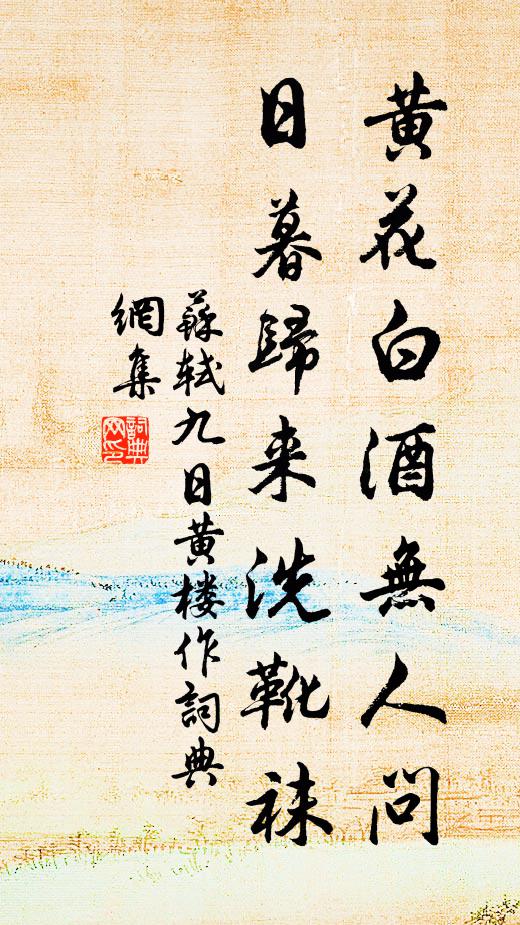 黄花白酒無人問
日暮歸来洗靴袜
蘇軾九日黄楼作詞典
網集
詞典
网印